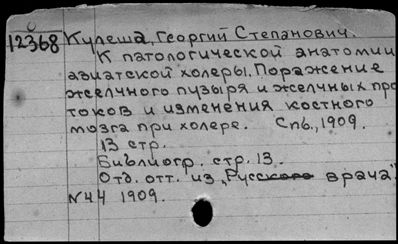 12368 Кулеша, Георгий Степанович.
К патологической анатомии
азиатской холеры. Поражение
желчного пузыря и желчных про
токов и изменения костного
мозга при холере. Спб., 1909.
13 стр.
Библиогр. стр. 13.
Отд. отт. из „Русского врача"
№44 1909.